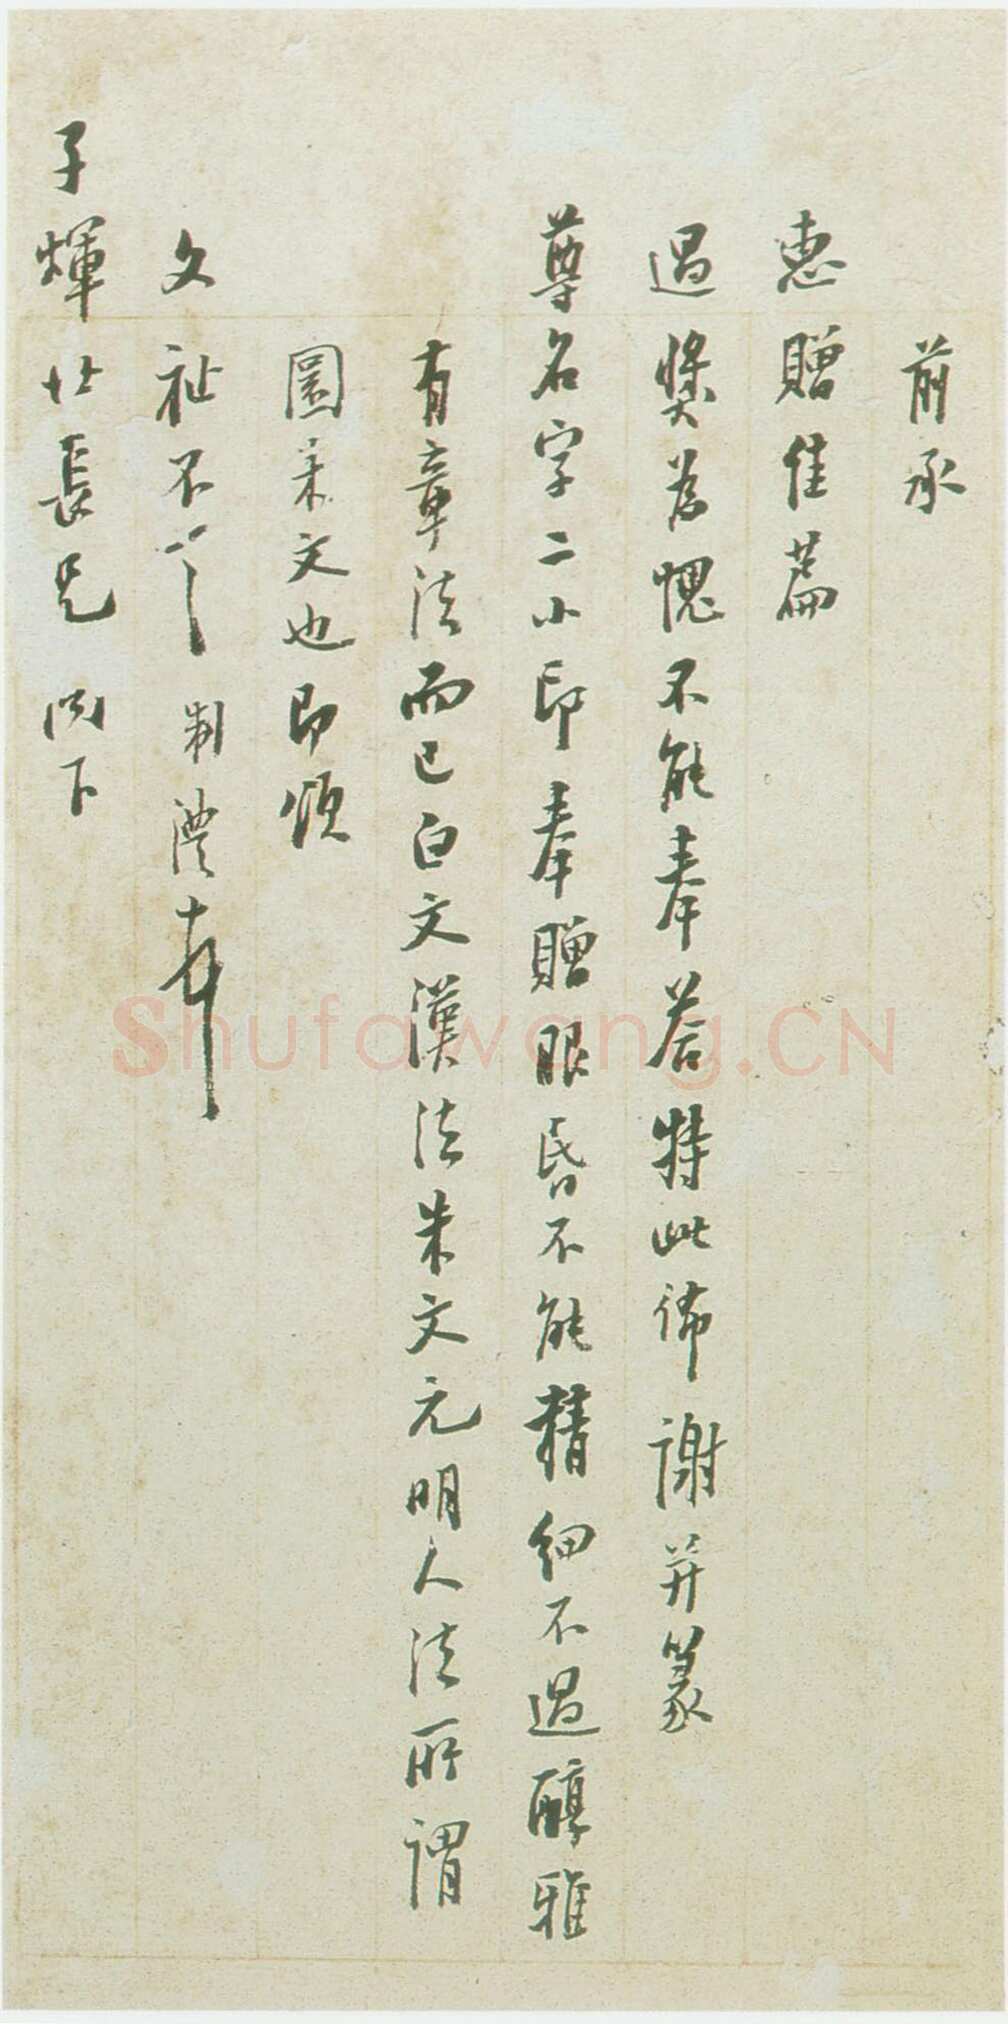 前承
惠贈佳篇
過獎為愧不能奉荅特此佈謝并篆
尊名字二小印奉贈眼昏不能精細不過醇雅
有章法而已白文漢法朱文元明人法所謂
圓朱文也即頌
文祉不 制澧
子煇仁長兄 閣下
Shufawang.CN